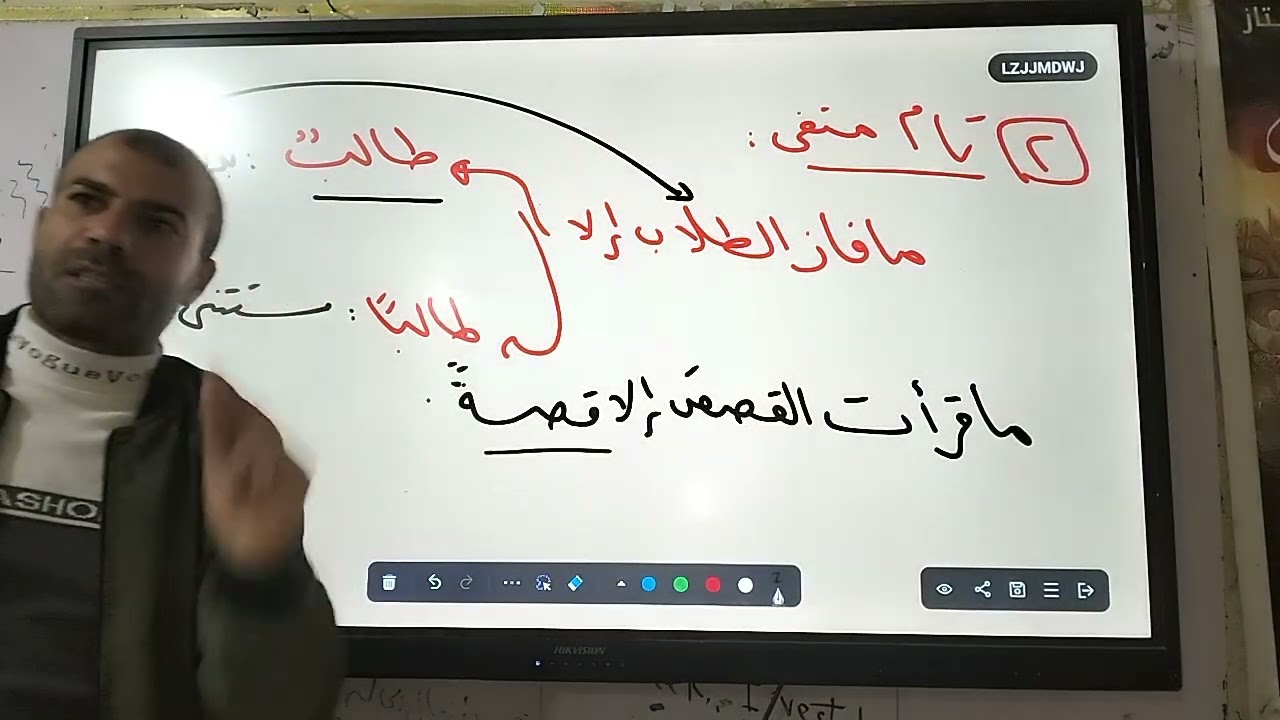 LZJJMDWJ
٢ تام منفي :
طالبٌ : بد
ما فاز الطلاب إلا
طالبًا : مستثنى
ما قرأت القصصَ إلا قصةً
HIKVISION
VogueVo
ASHO
تاز